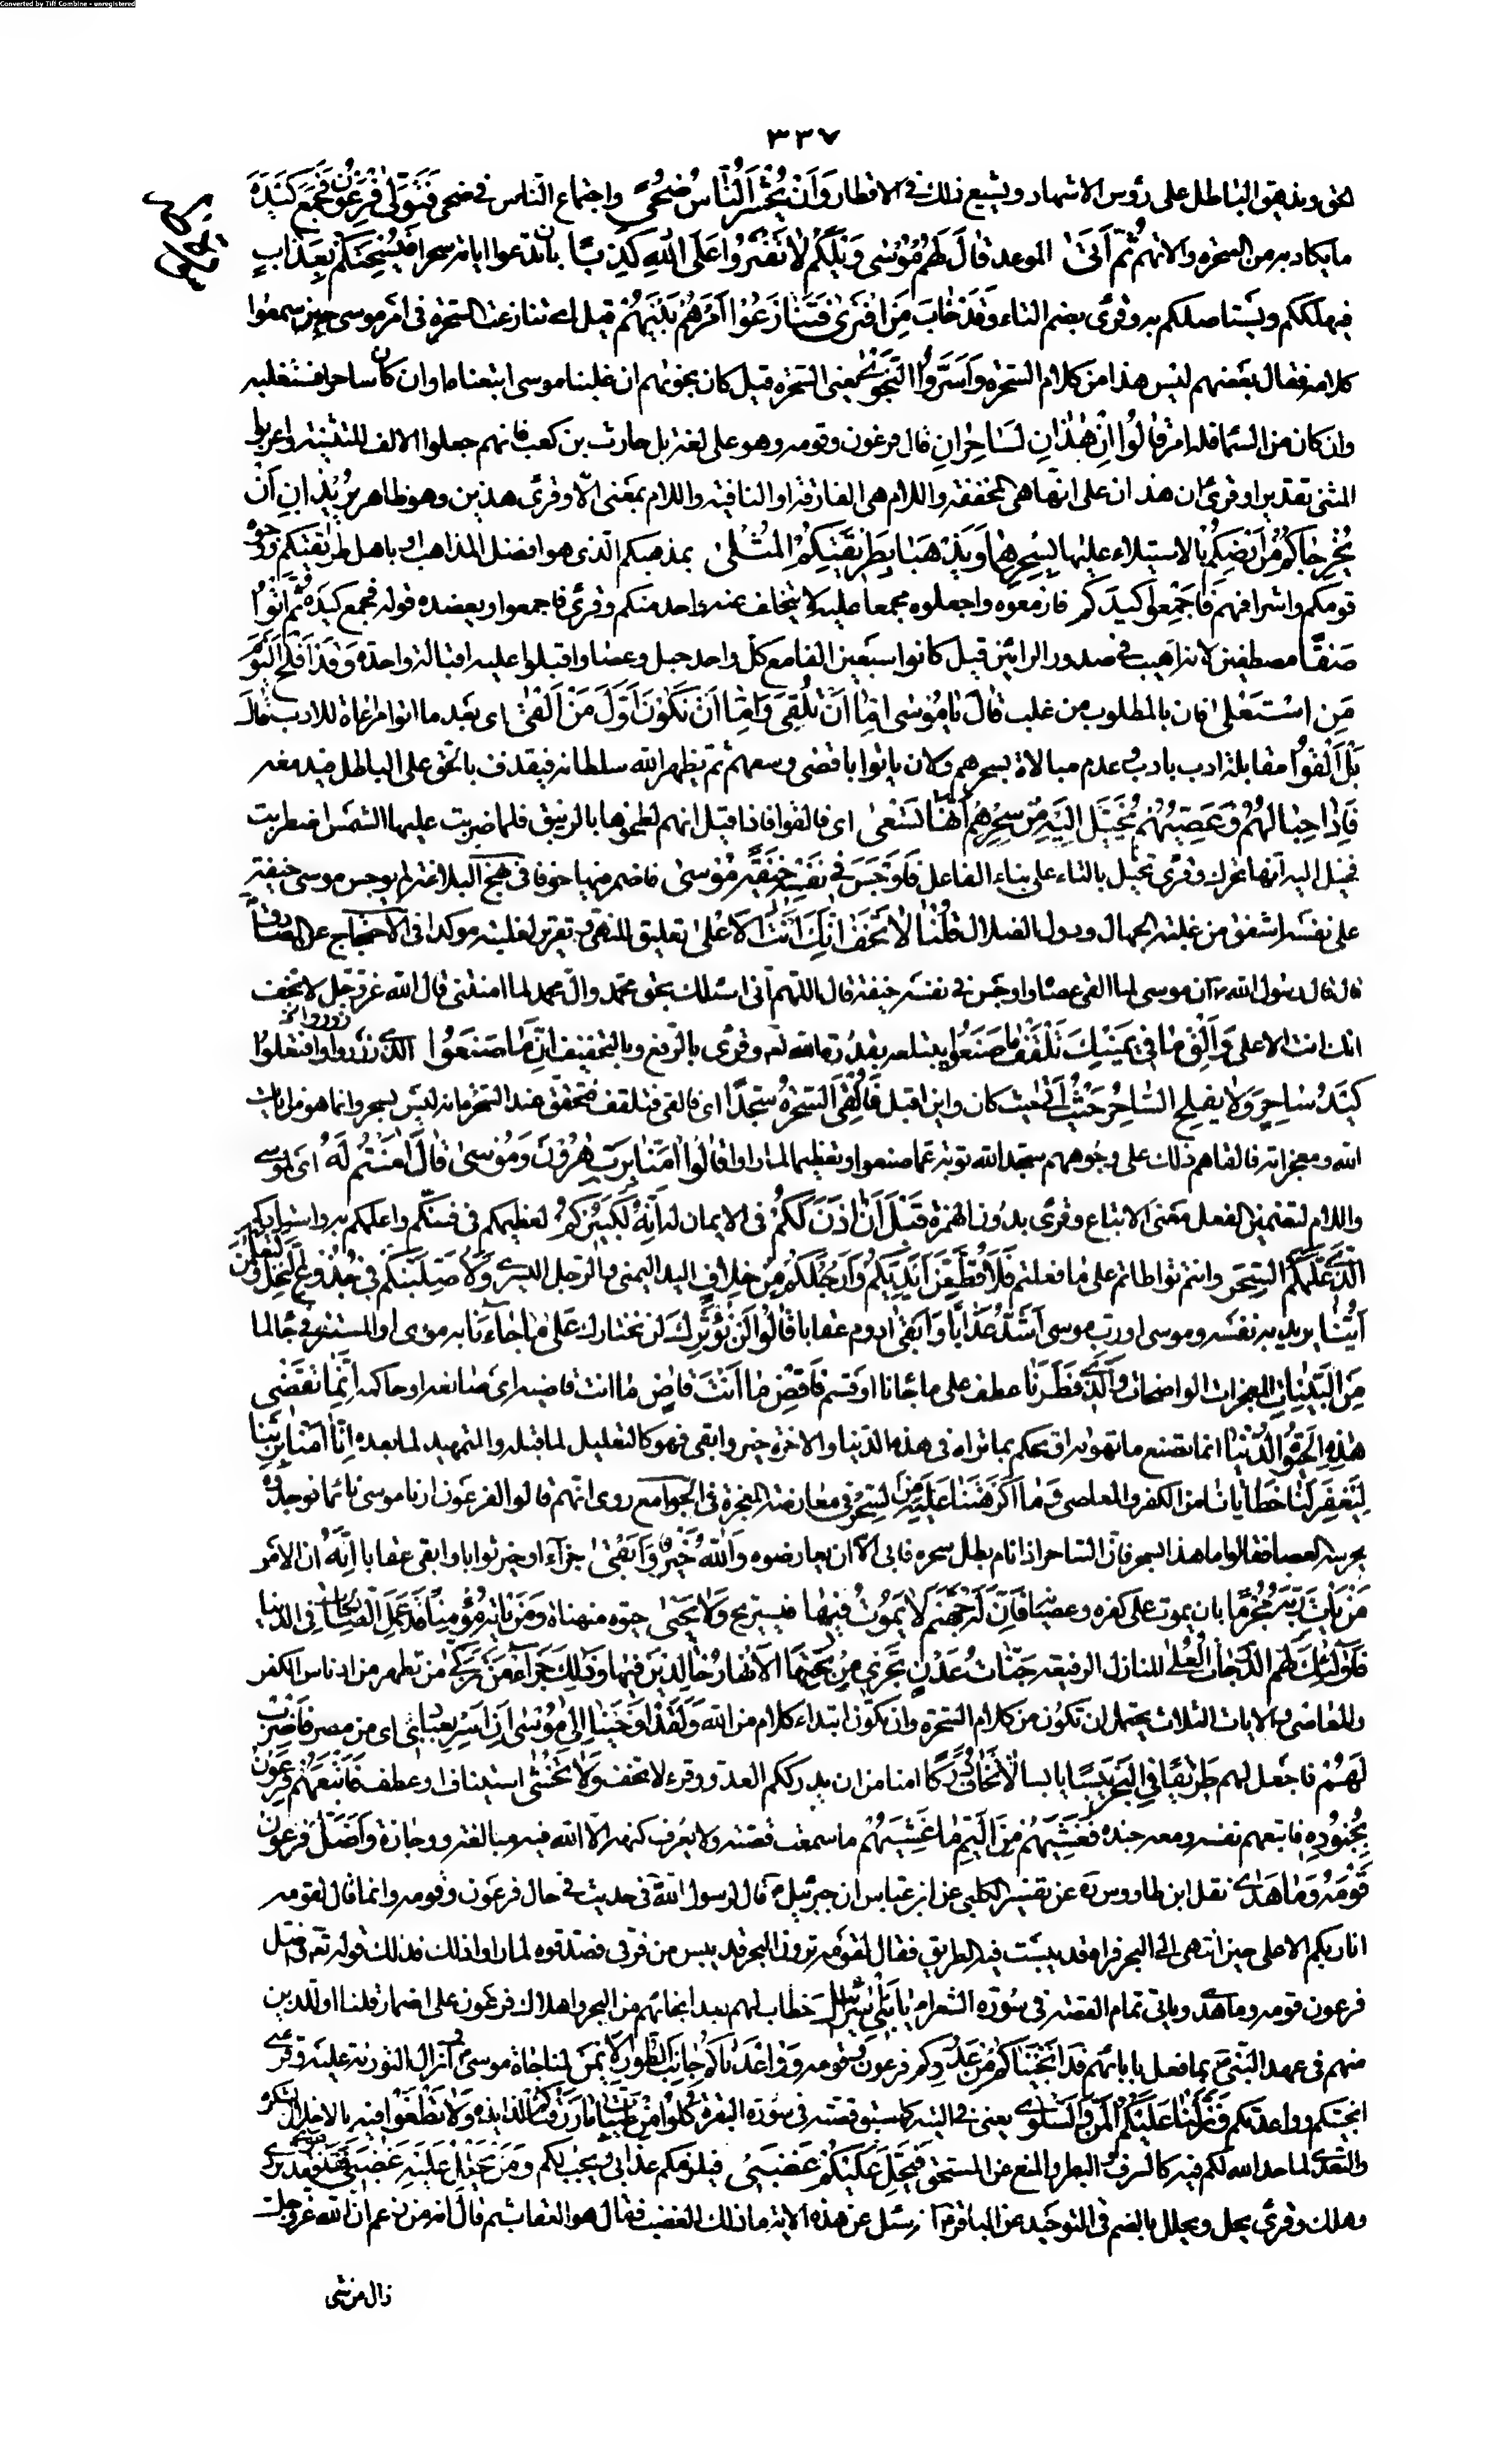 Converted by Tiff Combine - unregistered
٣٣٧
الحق ويذهق الباطل على رؤس الاشهاد ويشيع ذلك في الاقطار وَاَنْ يُحْشَرَ النّاسُ ضُحىً واجتماع الناس في ضحى فَتَوَلّىٰ فِرْعَوْنُ فَجَمَعَ كَيْدَهُ
ما يكاد به من السحرة والاتهم ثُمَّ اَتىٰ الموعد قالَ لَهُمْ مُوسٰى وَيْلَكُمْ لا تَفْتَرُوا عَلَى اللهِ كَذِباً بان تدعوا اياته سحرا فَيُسْحِتَكُمْ بِعَذابٍ
فيهلككم ويستاصلكم به وقرئ بضم الياء وَقَدْ خابَ مَنِ افْتَرىٰ فَتَنازَعُوا اَمْرَهُمْ بَيْنَهُمْ قيل اي تنازعت السحرة في امر موسى حين سمعوا
كلامه فقال بعضهم ليس هذا من كلام السحرة وَاَسَرُّوا النَّجْوىٰ يعني السحرة قيل كان نجويهم ان غلبنا موسى اتبعناه او ان كان ساحرا فسنغلبه
وان كان من السماء فله امر قالُوا اِنْ هٰذانِ لَساحِرانِ قال فرعون وقومه وهو على لغة بل حارث بن كعب فانهم جعلوا الالف للتثنية واعربوا
المثنى تقديرا وقرئ ان هذان على انها هي المخففة واللام هي الفارقة او النافية واللام بمعنى الا وقرئ هذين وهو ظاهر يُريدانِ اَنْ
يُخْرِجاكُمْ مِنْ اَرْضِكُمْ بالاستيلاء عليها بِسِحْرِهِما وَيَذْهَبا بِطَريقَتِكُمُ الْمُثْلىٰ بمذهبكم الذي هو افضل المذاهب او باهل طريقتكم وجوه
قومكم واشرافهم فَاَجْمِعُوا كَيْدَكُمْ فازمعوه واجعلوه مجمعا عليه لا يتخلف عنه واحد منكم وقرئ فاجمعوا ويعضده قوله فجمع كيده ثُمَّ ائْتُوا
صَفّاً مصطفين لانه اهيب في صدور الرائين قيل كانوا سبعين الفا مع كل واحد حبل وعصا واقبلوا عليه اقبالة واحدة وَقَدْ اَفْلَحَ الْيَوْمَ
مَنِ اسْتَعْلىٰ فاز بالمطلوب من غلب قالُوا يا مُوسٰى اِمّا اَنْ تُلْقِيَ وَاِمّا اَنْ نَكُونَ اَوَّلَ مَنْ اَلْقىٰ اي بعد ما اتوا مراعاة للادب قالَ
بَلْ اَلْقُوا مقابلة ادب بادب وعدم مبالاة بسحرهم ولان ياتوا باقضى وسعهم ثم يظهر الله سلطانه فيقذف بالحق على الباطل فيدمغه
فَاِذا حِبالُهُمْ وَعِصِيُّهُمْ يُخَيَّلُ اِلَيْهِ مِنْ سِحْرِهِمْ اَنَّها تَسْعىٰ اي فالقوا فاذا قيل انهم لطخوها بالزيبق فلما ضربت عليها الشمس اضطربت
فخيل اليه انها تتحرك وقرئ تخيل بالتاء على بناء الفاعل فَاَوْجَسَ في نَفْسِهِ خيفَةً مُوسىٰ فاضمر منها خوفا في نهج البلاغة لم يوجس موسى خيفة
على نفسه اشفق من غلبة الجهال ودول الضلال قُلْنا لا تَخَفْ اِنَّكَ اَنْتَ الْاَعْلىٰ تعليق للنهي وتقرير لغلبته مؤكدا في الاحتجاج عن الصادق
قال قال رسول الله ان موسى لما القى عصاه واوجس في نفسه خيفة قال اللهم اني اسئلك بحق محمد وال محمد لما امنتني قال الله عز وجل لا تخف
انك انت الاعلى وَاَلْقِ ما في يَمينِكَ تَلْقَفْ ما صَنَعُوا يبتلعه بقدرة الله تعالى وقرئ بالرفع وبالتخفيف اِنَّما صَنَعُوا الذي زوروا وافتعلوا
كَيْدُ ساحِرٍ وَلا يُفْلِحُ السّاحِرُ حَيْثُ اَتىٰ حيث كان واين اقبل فَاُلْقِيَ السَّحَرَةُ سُجَّداً اي فالقى فتلقف فتحقق عند السحرة انه ليس بسحر وانما هو من ايات
الله ومعجزاته فالقاهم ذلك على وجوههم سجدا لله توبة عما صنعوا وتعظيما لما راوا قالُوا اٰمَنّا بِرَبِّ هٰرُونَ وَمُوسىٰ قالَ اٰمَنْتُمْ لَهُ اي لموسى
واللام لتضمين الفعل معنى الاتباع وقرئ بدون الهمزة قَبْلَ اَنْ اٰذَنَ لَكُمْ في الايمان له اِنَّهُ لَكَبيرُكُمُ لعظيمكم في فنكم واعلمكم به واستادكم
الَّذي عَلَّمَكُمُ السِّحْرَ وانتم تواطاتم على ما فعلتم فَلَاُقَطِّعَنَّ اَيْدِيَكُمْ وَاَرْجُلَكُمْ مِنْ خِلافٍ اليد اليمنى والرجل اليسرى وَلَاُصَلِّبَنَّكُمْ في جُذُوعِ النَّخْلِ وَلَتَعْلَمُنَّ
اَيُّنا يريد به نفسه وموسى او رب موسى اَشَدُّ عَذاباً وَاَبْقىٰ ادوم عقابا قالُوا لَنْ نُؤْثِرَكَ لن نختارك عَلىٰ ما جاءَنا به موسى او المستتر في جاء لما
مِنَ الْبَيِّناتِ المعجزات الواضحات وَالَّذي فَطَرَنا عطف على ما جاءنا او قسم فَاقْضِ ما اَنْتَ قاضٍ ما انت قاضيه اي صانعه او حاكمه اِنَّما تَقْضي
هٰذِهِ الْحَيٰوةَ الدُّنْيا انما تصنع ما تهواه او تحكم بما تراه في هذه الدنيا والاخرة خير وابقى فهو كالتعليل لما قبله والتمهيد لما بعده اِنّا اٰمَنّا بِرَبِّنا
لِيَغْفِرَ لَنا خَطايانا من الكفر والمعاصي وَما اَكْرَهْتَنا عَلَيْهِ مِنَ السِّحْرِ في معارضة المعجزة في الجوامع روى انهم قالوا لفرعون ارنا موسى نائما فوجدوه
يحرسه العصا فقالوا ما هذا بسحر فان الساحر اذا نام بطل سحره فابى الا ان يعارضوه وَاللهُ خَيْرٌ وَاَبْقىٰ جزاء او خير ثوابا وابقى عقابا اِنَّهُ ان الامر
مَنْ يَأْتِ رَبَّهُ مُجْرِماً بان يموت على كفره وعصيانه فَاِنَّ لَهُ جَهَنَّمَ لا يَمُوتُ فيها فيستريح وَلا يَحْيىٰ حيوة مهناة وَمَنْ يَأْتِهِ مُؤْمِناً قَدْ عَمِلَ الصّالِحاتِ في الدنيا
فَاُولٰئِكَ لَهُمُ الدَّرَجاتُ الْعُلىٰ المنازل الرفيعة جَنّاتُ عَدْنٍ تَجْري مِنْ تَحْتِهَا الْاَنْهارُ خالِدينَ فيها وَذٰلِكَ جَزاءُ مَنْ تَزَكّىٰ من تطهر من ادناس الكفر
والمعاصي والايات الثلاث يحتمل ان تكون من كلام السحرة وان يكون ابتداء كلام من الله وَلَقَدْ اَوْحَيْنا اِلىٰ مُوسىٰ اَنْ اَسْرِ بِعِبادي اي من مصر فَاضْرِبْ
لَهُمْ فاجعل لهم طَريقاً فِي الْبَحْرِ يَبَساً يابسا لا تَخافُ دَرَكاً امنا من ان يدرككم العدو وقرء لا تخف وَلا تَخْشىٰ استيناف او عطف فَاَتْبَعَهُمْ فِرْعَوْنُ
بِجُنُودِهِ فاتبعهم نفسه ومعه جنده فَغَشِيَهُمْ مِنَ الْيَمِّ ما غَشِيَهُمْ ما سمعت قصته ولا يعرف كنهه الا الله فيه مبالغة ووجازة وَاَضَلَّ فِرْعَوْنُ
قَوْمَهُ وَما هَدىٰ نقل ابن طاووس ره عن تفسير الكلبي عن ابن عباس ان جبرئيل قال لرسول الله في حديث في حال فرعون وقومه وانما قال لقومه
انا ربكم الاعلى حين انتهى الى البحر فراه قد يبست فيه الطريق فقال لقومه ترون البحر قد يبس من فرقي فصدقوه لما راوا ذلك فذلك قوله تعالى واضل
فرعون قومه وما هدى وياتي تمام القصة في سورة الشعراء يا بَني اِسْرائيلَ خطاب لهم بعد انجائهم من البحر واهلاك فرعون على اضمار قلنا او للذين
منهم في عهد النبي بما فعل بابائهم قَدْ اَنْجَيْناكُمْ مِنْ عَدُوِّكُمْ فرعون وقومه وَوٰاعَدْناكُمْ جانِبَ الطُّورِ الْاَيْمَنَ لمناجاة موسى وانزال التورية عليه وقرئ
انجيتكم وواعدتكم وَنَزَّلْنا عَلَيْكُمُ الْمَنَّ وَالسَّلْوىٰ يعني في التيه كما سبق قصته في سورة البقرة كُلُوا مِنْ طَيِّباتِ ما رَزَقْناكُمْ لذائذه وَلا تَطْغَوْا فيهِ بالاخلال بشكره
والتعدي لما حد الله لكم فيه كالسرف والبطر والمنع عن المستحق فَيَحِلَّ عَلَيْكُمْ غَضَبي فيلزمكم عذابي ويجب لكم وَمَنْ يَحْلِلْ عَلَيْهِ غَضَبي فَقَدْ هَوىٰ فقد تردى
وهلك وقرئ يحل ويحلل بالضم في التوحيد عن الباقر انه سئل عن هذه الاية ما ذلك الغضب فقال هو العقاب ثم قال انه من زعم ان الله عز وجل
زال من شئ